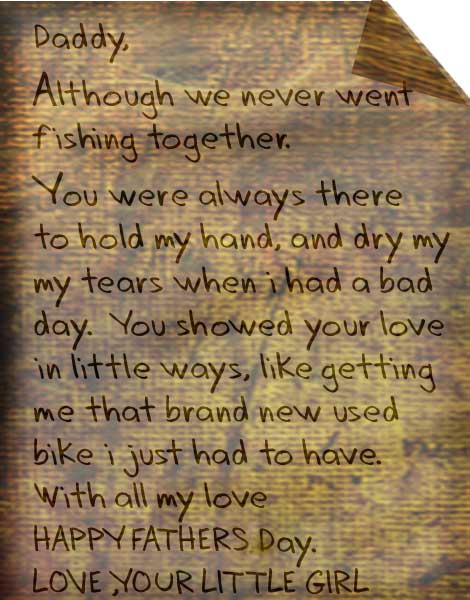 Daddy,
Although we never went
fishing together.
You were always there
to hold my hand, and dry my
my tears when i had a bad
day. You showed your love
in little ways, like getting
me that brand new used
bike i just had to have.
With all my love
HAPPY FATHERS Day.
LOVE ,YOUR LITTLE GIRL